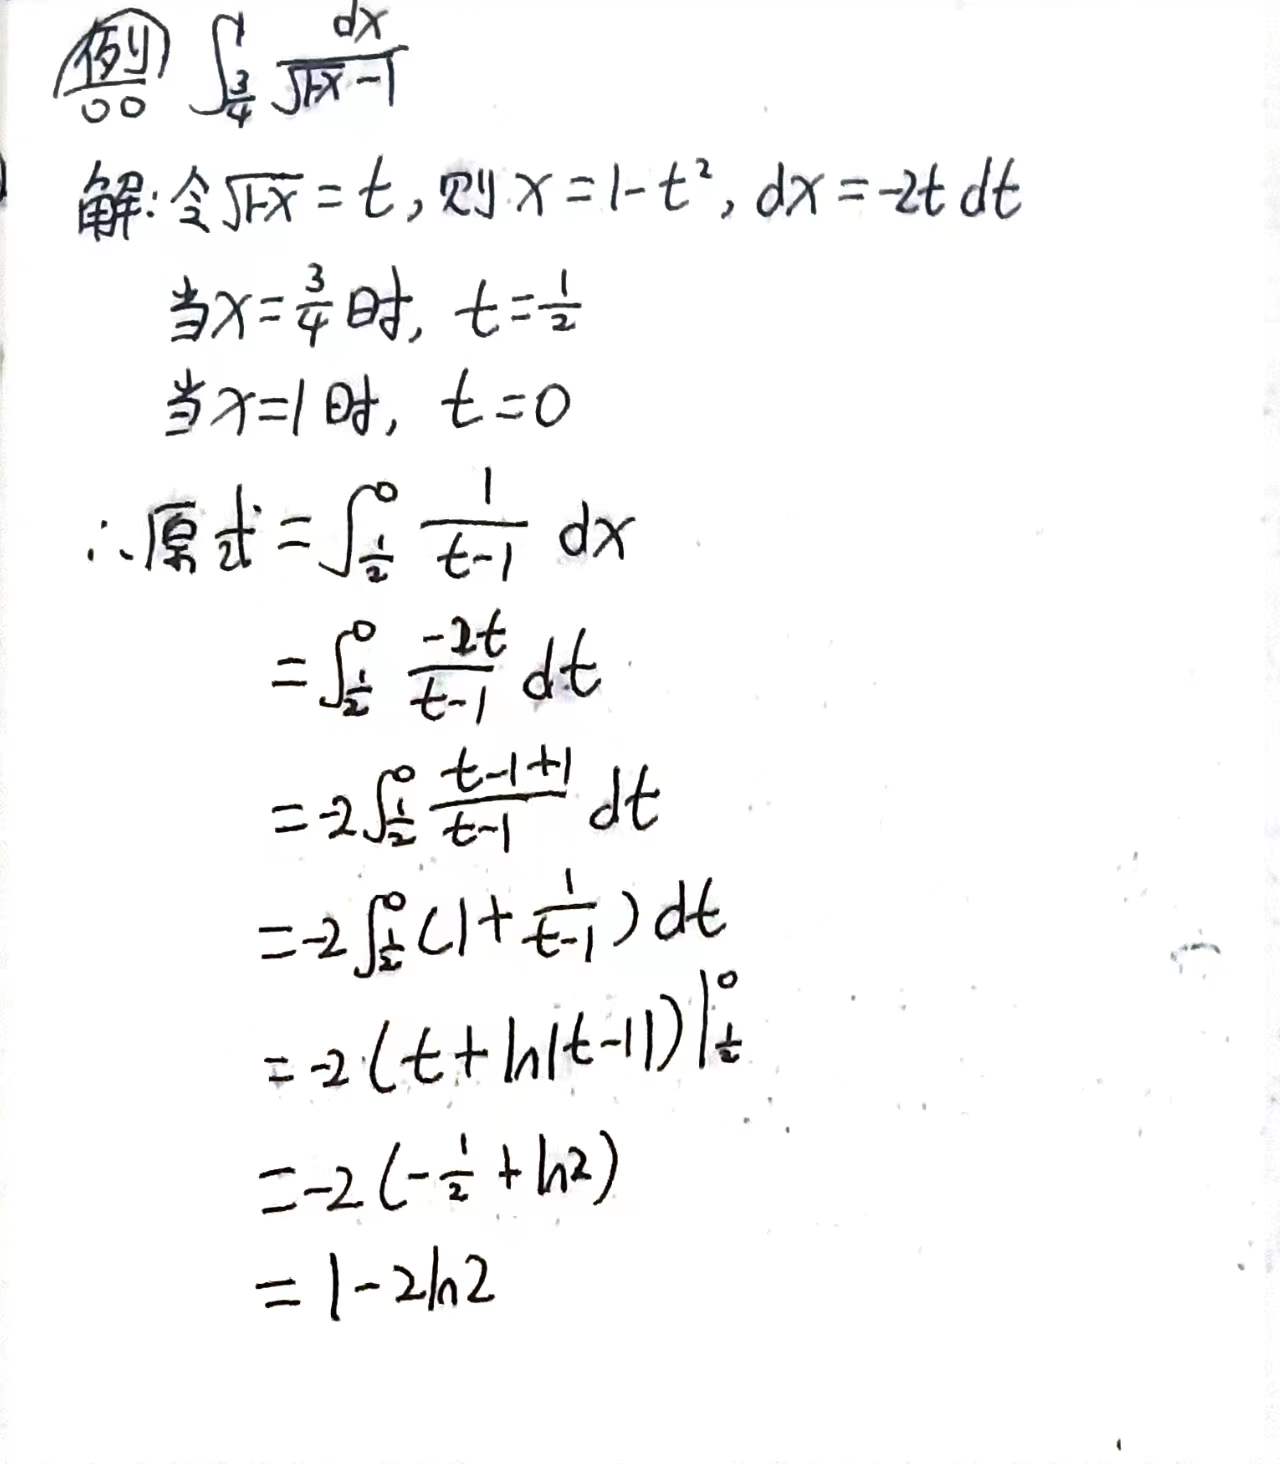 例 ∫_{3/4}^{1} dx/(√(1-x) -1)
解:令√(1-x) = t, 则 x = 1-t², dx = -2t dt
当x=3/4时, t=1/2
当x=1时, t=0
∴原式 = ∫_{1/2}^{0} 1/(t-1) dx
= ∫_{1/2}^{0} -2t/(t-1) dt
= -2∫_{1/2}^{0} (t-1+1)/(t-1) dt
= -2∫_{1/2}^{0} (1 + 1/(t-1)) dt
= -2(t + ln|t-1|)|_{1/2}^{0}
= -2(-1/2 + ln2)
= 1-2ln2